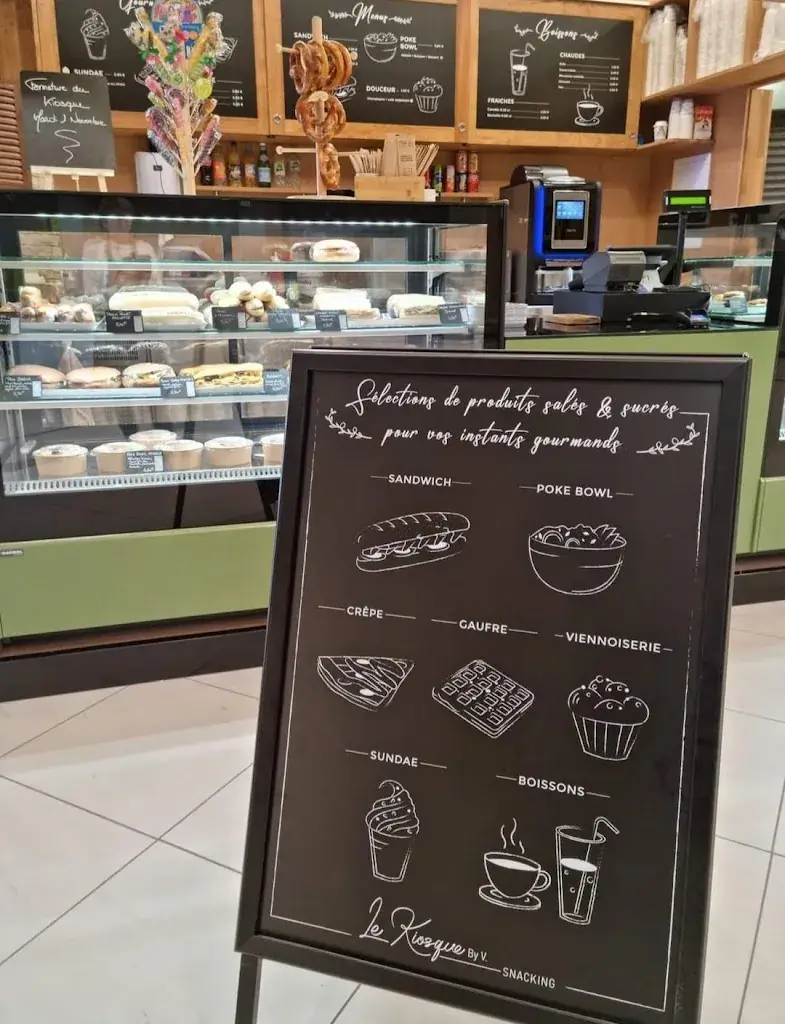 Gour
SUNDAE
Menus
SAND
POKE
BOWL
DOUCEUR
Boissons
CHAUDES
FRAICHES
Fermeture du
Kiosque
Mardi 1 Novembre
Sélections de produits salés & sucrés
pour vos instants gourmands
SANDWICH
POKE BOWL
CRÊPE
GAUFRE
VIENNOISERIE
SUNDAE
BOISSONS
Le Kiosque By V.
SNACKING